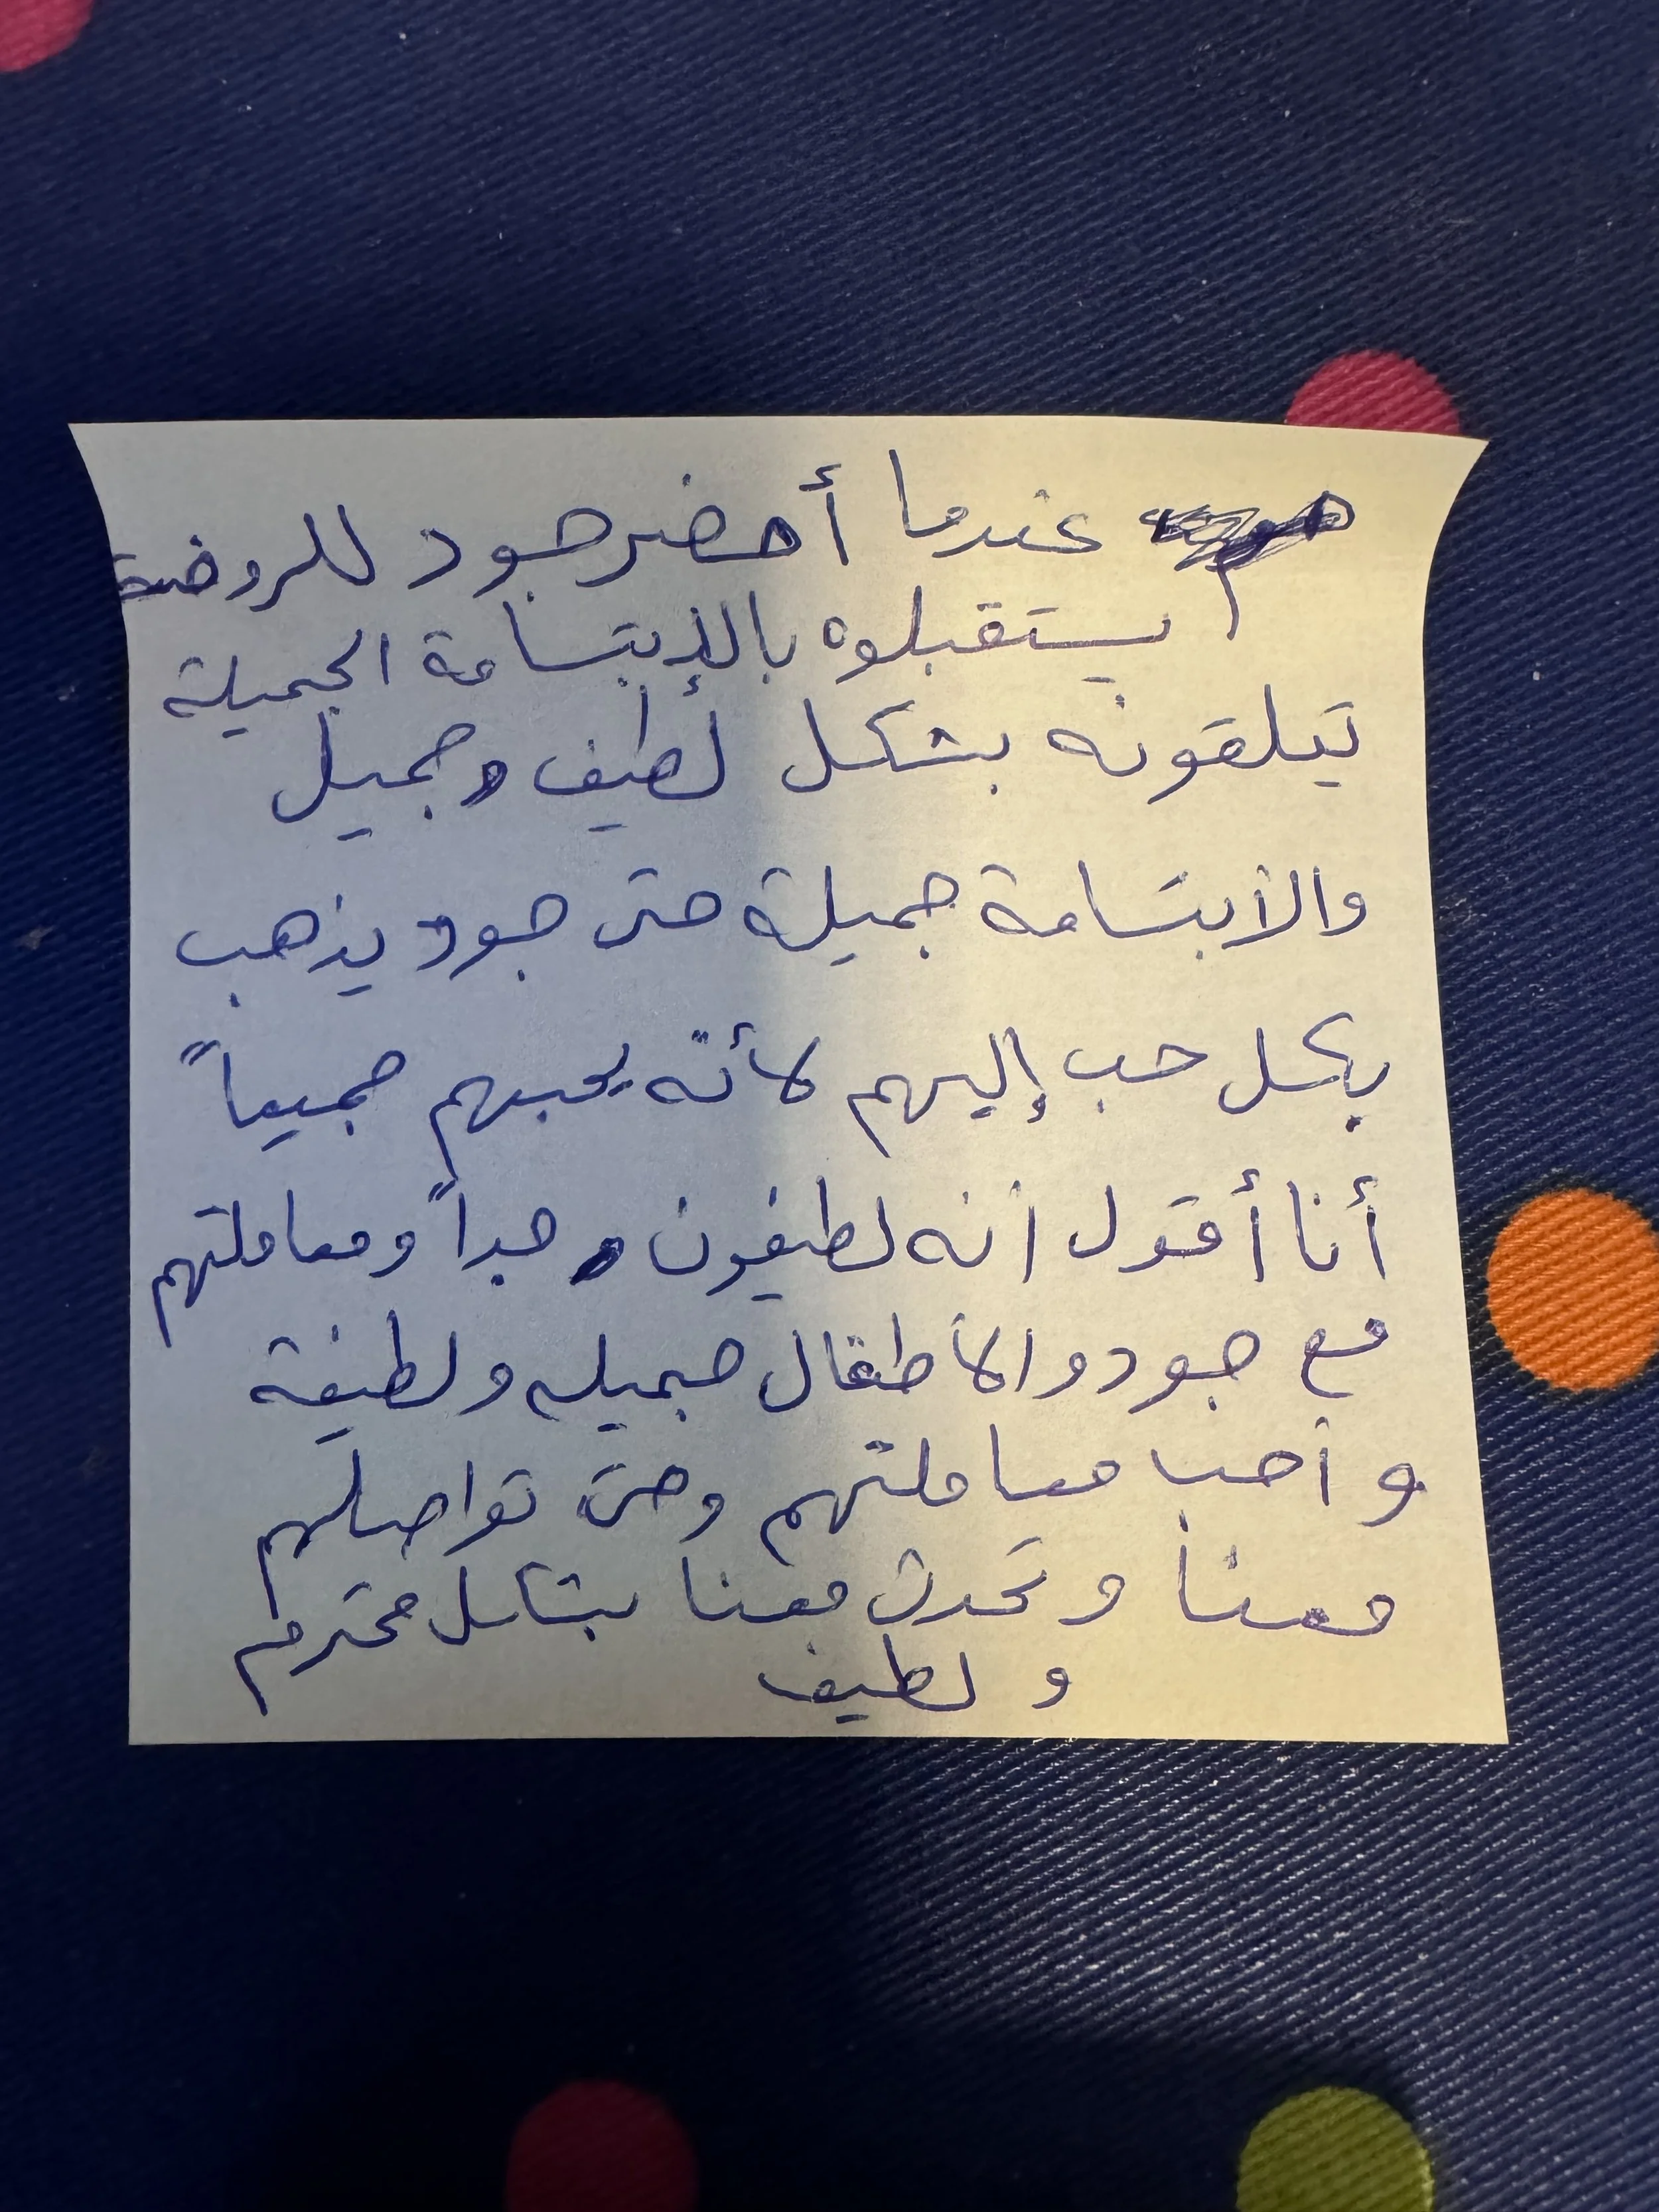 عندما أحضر جود للروضة
يستقبلوه بالإبتسامة الجميلة
تيلقونه بشكل لطيف وجميل
والأبتسامة جميلة حتى جود يذهب
بكل حب إليهم لأنه يحبهم جميعاً
أنا أقول أنه لطيفون جداً ومعاملتهم
مع جود والأطفال جميله ولطيفة
وأحب معاملتهم وحتى تواصلهم
معنا وتحدث معنا بشكل محترم
ولطيف